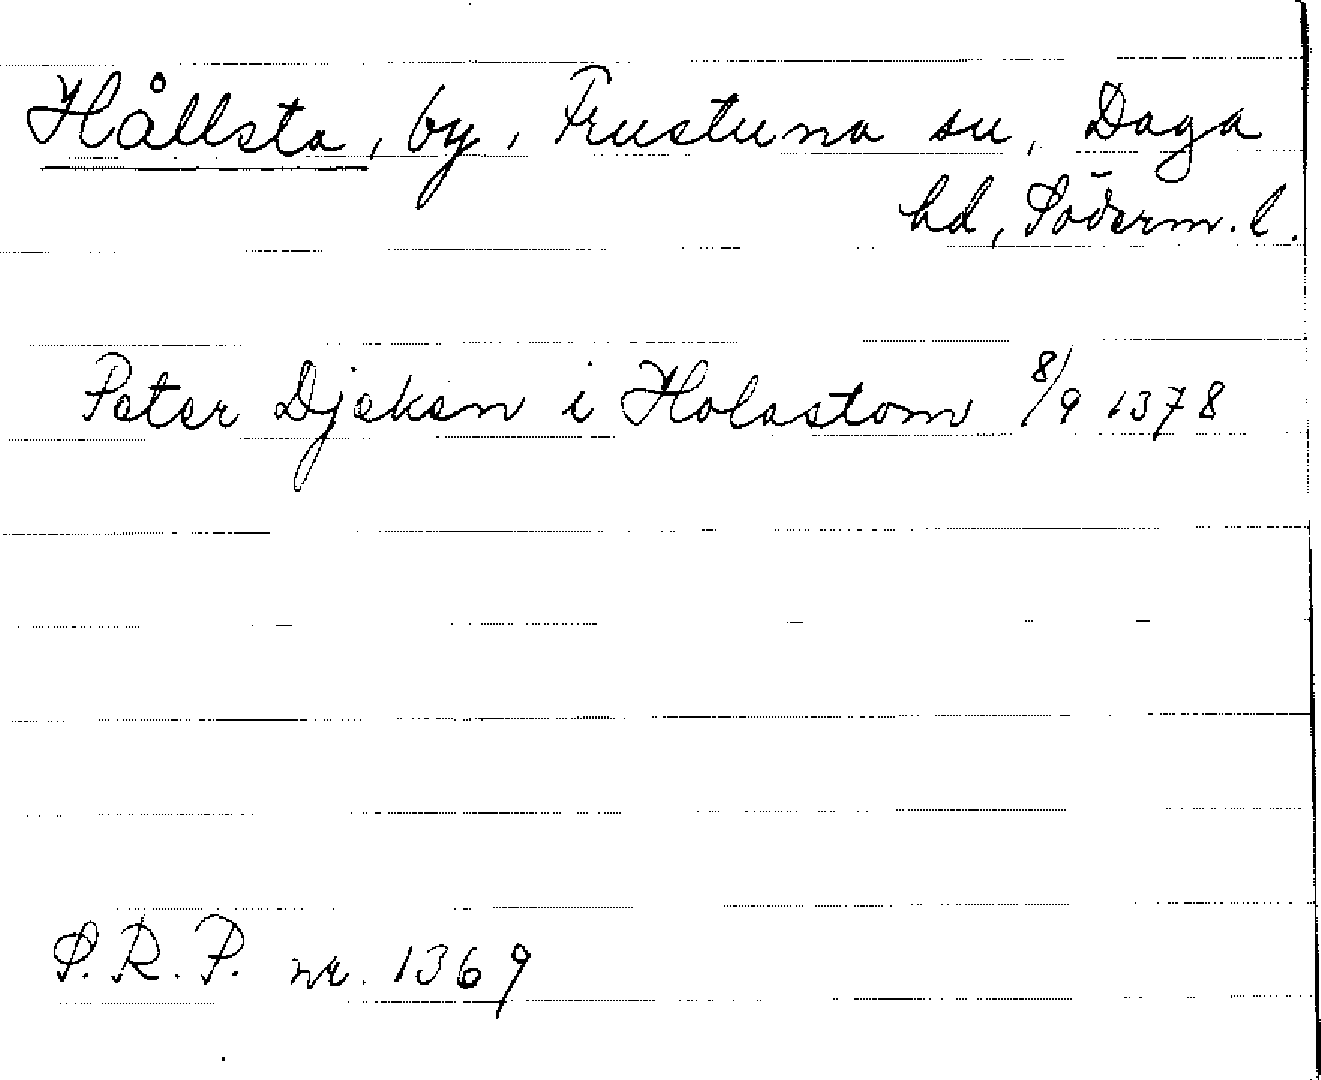 Hållsta, by, Frustuna sn, Daga
hd, Söderm. l.
Peter Djeken i Holastom 8/9 1378
S.R.P. nr. 1369